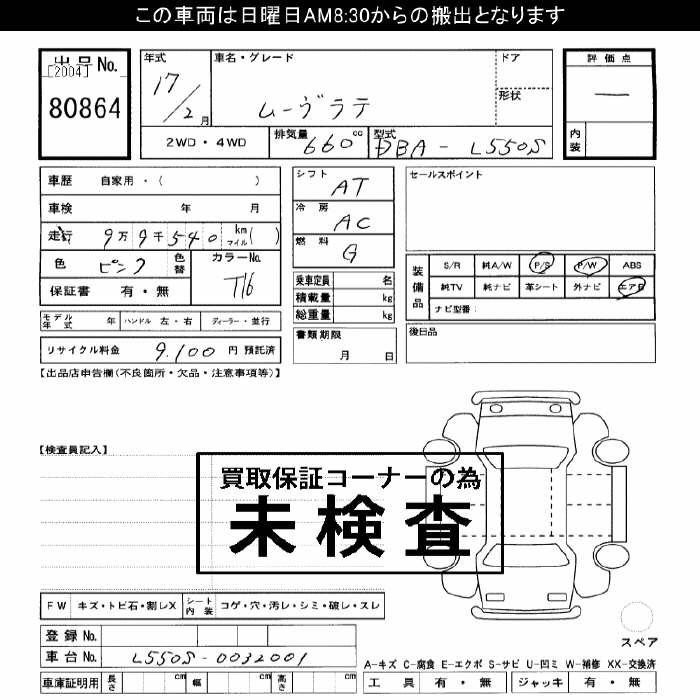 この車両は日曜日AM8:30からの搬出となります
出品No.
[2004]
80864
年式
17/2月
車名・グレード
ムーヴラテ
ドア
形状
評価点
―
内装
2WD・4WD
排気量 660cc
型式 DBA-L550S
車歴 自家用・( )
車検 年 月
走行 9万9千540 km マイル( )
色 ピンク 色替
カラーNo. T16
保証書 有・無
モデル年式 年 ハンドル 左・右 ディーラー・並行
リサイクル料金 9.100 円 預託済
シフト AT
冷房 AC
燃料 G
乗車定員 名
積載量 kg
総重量 kg
書類期限
月 日
セールスポイント
装備品
S/R 純A/W P/S P/W ABS
純TV 純ナビ 革シート 外ナビ エアB
ナビ型番:
後日品
【出品店申告欄(不良箇所・欠品・注意事項等)】
【検査員記入】
買取保証コーナーの為
未検査
FW キズ・トビ石・割レX シート内装 コゲ・穴・汚レ・シミ・破レ・スレ
登録No.
車台No. L550S-0032001
車庫証明用 長さ cm 幅 cm 高さ cm
スペア
A-キズ C-腐食 E-エクボ S-サビ U-凹ミ W-補修 XX-交換済
工具 有・無 ジャッキ 有・無